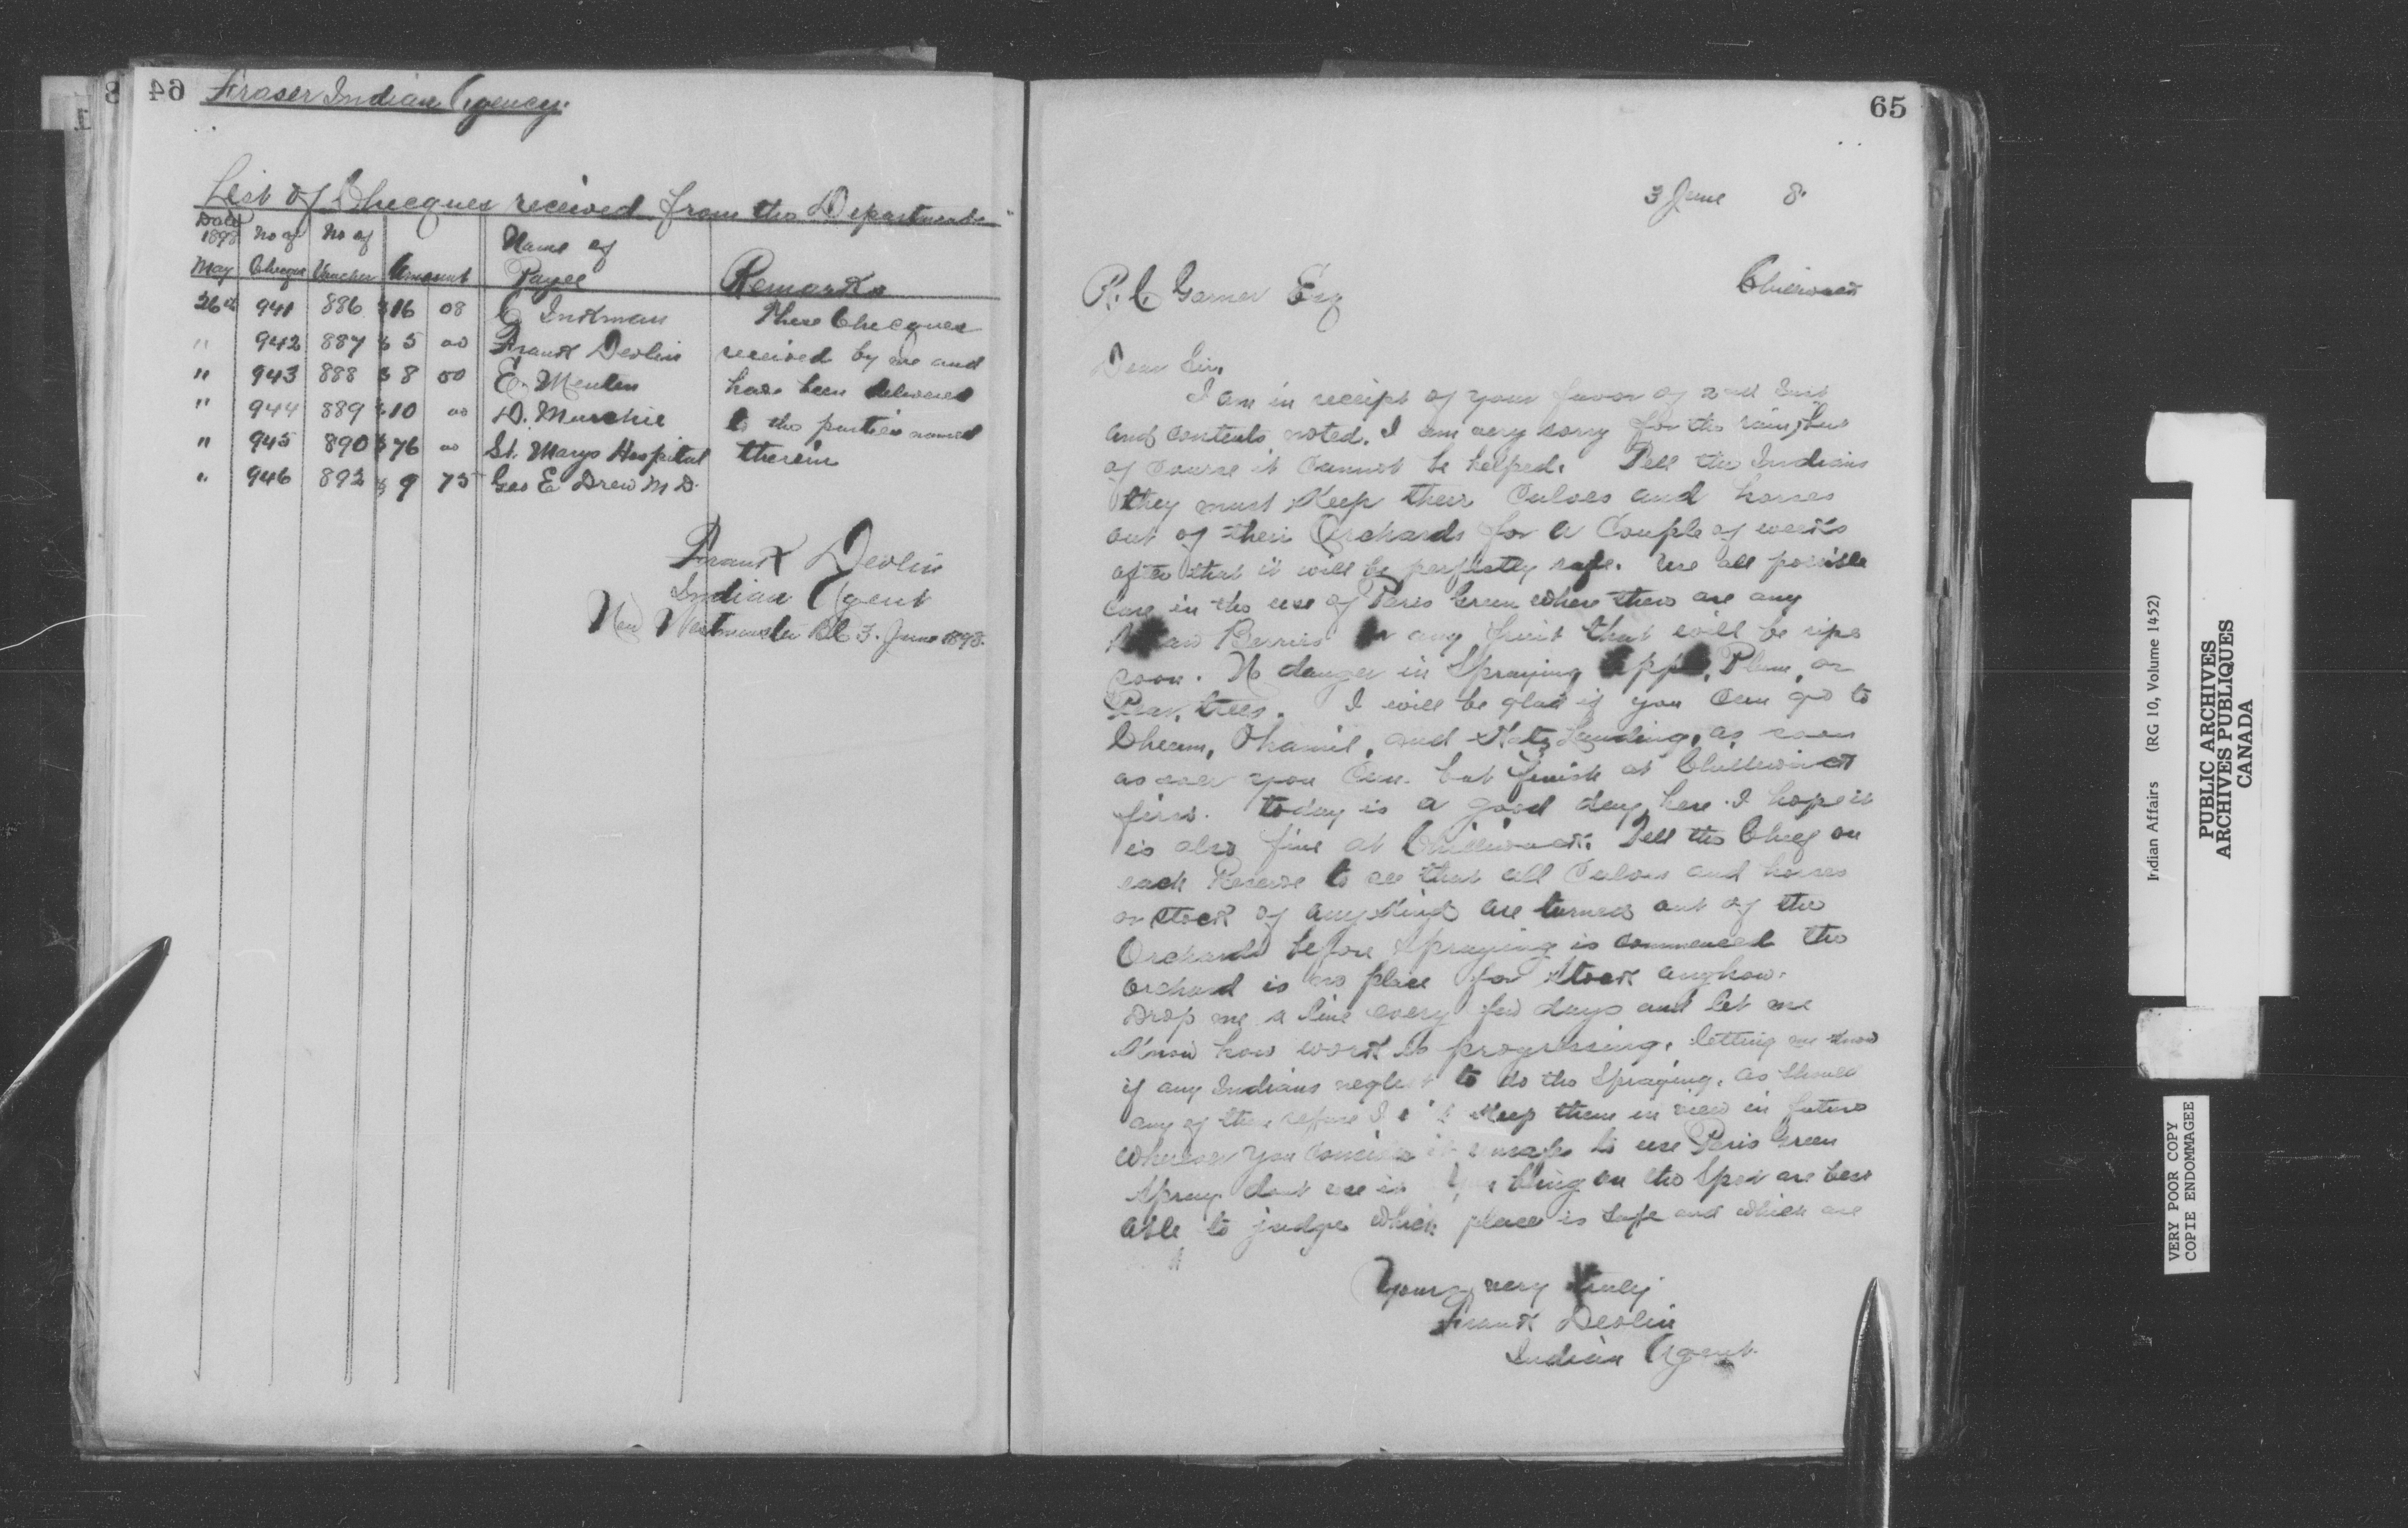 64
Fraser Indian Agency.
List of Checques received from the Department.
Date 1898 May | No of Cheque | No of Voucher | Amount | Name of Payee | Remarks
26th 941 886 $16 08 C. Inkman These Checques
" 942 887 $5 00 Frank Devlin received by me and
" 943 888 $8 50 E. have been delivered
" 944 889 $10 00 D. Murchie to the parties named
" 945 890 $76 00 St. Marys Hospital therein
" 946 892 $9 75 Geo E Drew M D.
Frank Devlin
Indian Agent
New Westminster BC 3. June 1898.
65
3 June 8.
R. C. Garner Esq
Chilliwack
Dear Sir,
I am in receipt of your favor of 2nd Inst
and contents noted. I am very sorry for the rain, but
of course it cannot be helped. Tell the Indians
they must Keep their Calves and horses
out of their Orchards for a Couple of weeks
after that it will be perfectly safe. Use all possible
Care in the use of Paris Green where there are any
Straw Berries or any fruit that will be ripe
soon. No danger in Spraying Apple, Plum, or
Pear, trees. I will be glad if you Can go to
Cheam, Ohamil, and Katz Landing, as soon
as ever you Can. but finish at Chilliwack
first. today is a good day here. I hope it
is also fine at Chilliwack. Tell the Chief on
each Reserve to see that all Calves and horses
or stock of any Kind are turned out of the
Orchards before Spraying is commenced the
Orchard is no place for stock anyhow.
Drop me a line every few days and let me
Know how work is progressing. letting me know
if any Indians neglect to do the Spraying. as should
any of them refuse I will Keep them in view in future
Wherever you Consider it unsafe to use Paris Green
Spray. dont use it You being on the Spot are best
able to judge which place is safe and which are
Yours very truly
Frank Devlin
Indian Agent.
Indian Affairs (RG 10, Volume 1452)
PUBLIC ARCHIVES
ARCHIVES PUBLIQUES
CANADA
VERY POOR COPY
COPIE ENDOMMAGEE